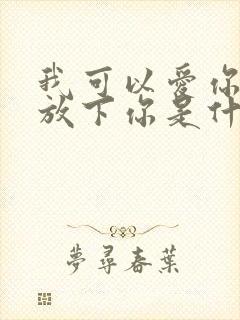 我可以愛你
放下你是什
夢尋春葉